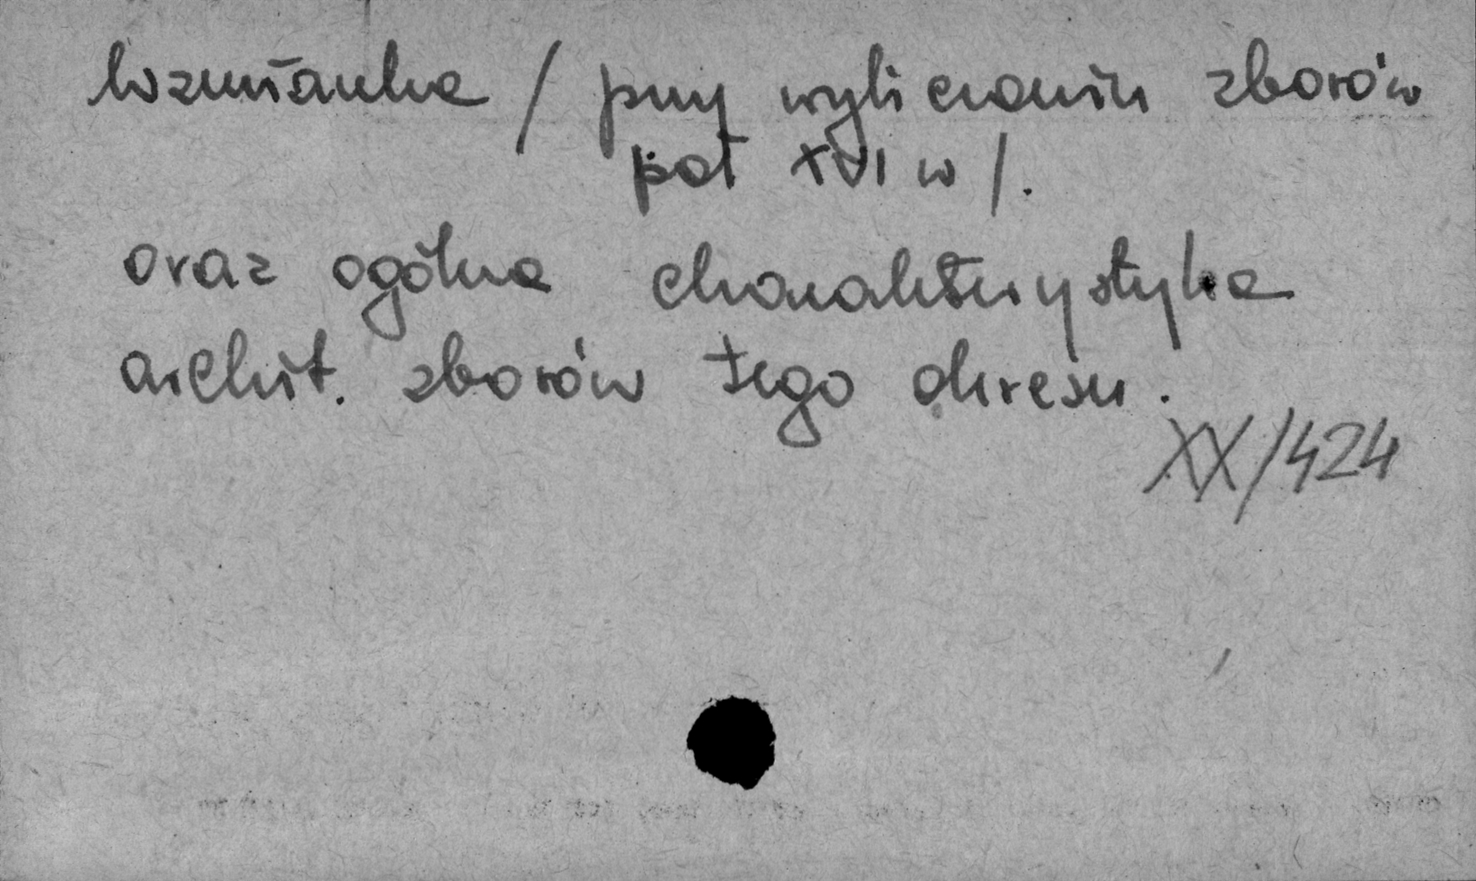 Wzmianka / przy wyliczaniu zborów
poł XVI w /.
oraz ogólna charakterystyka
archit. zborów tego okresu.
XX/424